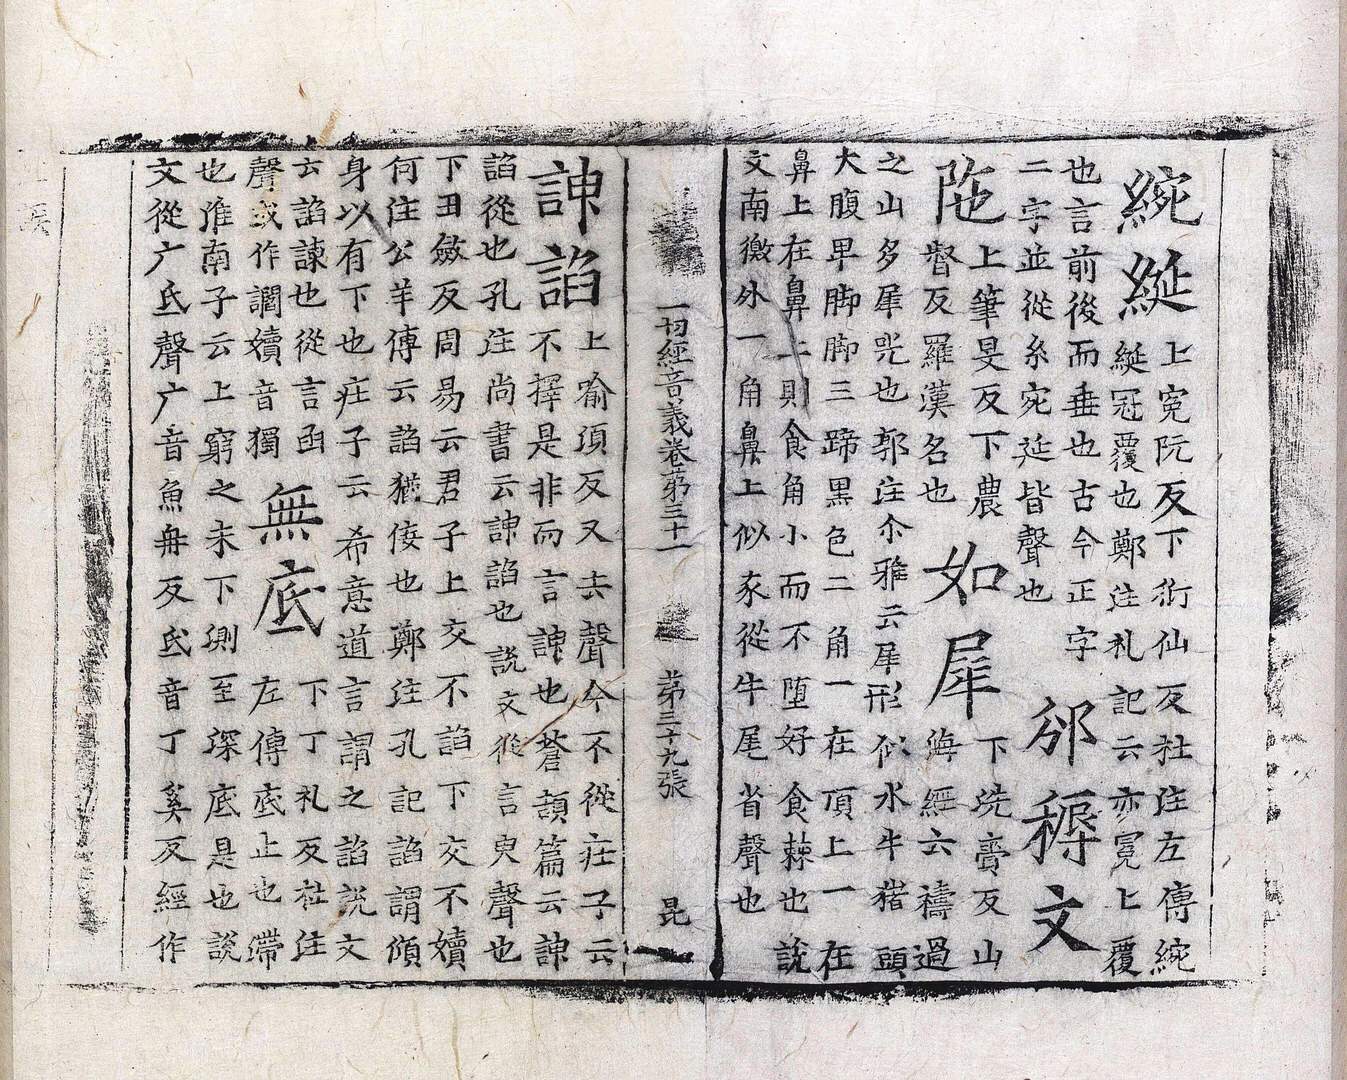 綩綖上寃阮反下衍仙反杜注左傳綩
綖冠覆也鄭注礼記云亦冕上覆
也言前後而垂也古今正字
二字並從糸宛延皆聲也
邠耨文
陁上筆旻反下農
督反羅漢名也
如犀下洗賷反山
海經云禱過
之山多犀兕也郭注尒雅云犀形似水牛猪頭
大腹早脚脚三蹄黑色二角一在頂上一在
鼻上在鼻上則食角小而不堕好食棘也說
文南徼外一角鼻上似豕從牛尾省聲也
一切經音義卷第三十一 第三十九張 昆
諛諂上喻須反又去聲今不從庄子云
不擇是非而言諛也蒼頡篇云諛
諂從也孔注尚書云諛諂也說文從言臾聲也
下丑斂反周易云君子上交不諂下交不嬻
何注公羊傳云諂猶佞也鄭注孔記諂謂傾
身以有下也庄子云希意道言謂之諂說文
云諂諫也從言臽
聲或作讇嬻音獨
無底下丁礼反杜注
左傳底止也滯
也淮南子云上窮之末下測至深底是也說
文從广氐聲广音魚舟反氐音丁奚反經作